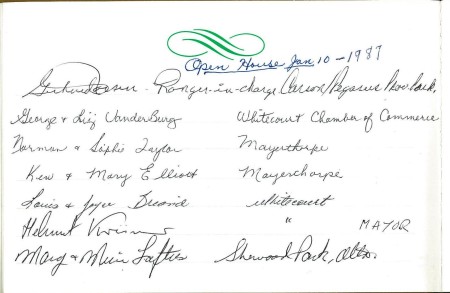 Open House Jan 10 - 1987
Ranger-in-charge Carson Pegasus Prov. Park.
George & Liz VanderBurg Whitecourt Chamber of Commerce
Norman & Sophie Taylor Mayerthorpe
Ken & Mary Elliott Mayerthorpe
Louis & Joyce Whitecourt
Helmut " MAYOR
Mary & Sherwood Park, Alta.